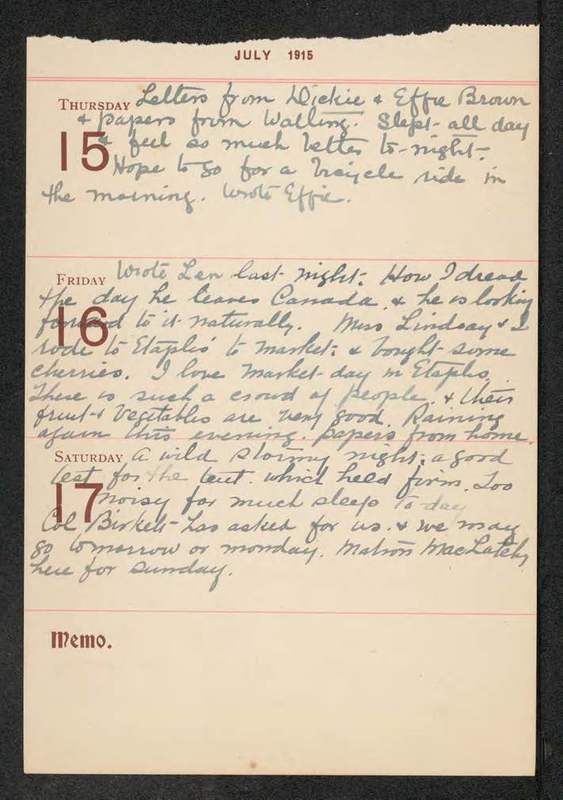 JULY 1915
THURSDAY Letters from Dickie & Effie Brown
15 & papers from Walling. Slept all day
& feel so much better to-night.
Hope to go for a bicycle ride in
the morning. Wrote Effie.
FRIDAY Wrote Len last night. How I dread
16 the day he leaves Canada & he is looking
forward to it naturally. Miss Lindsay & I
rode to Etaples to market & bought some
cherries. I love market-day in Etaples.
There is such a crowd of people & their
fruit & vegetables are very good. Raining
again this evening. papers from home.
SATURDAY A wild stormy night, a good
17 test for the tent which held firm. Too
noisy for much sleep to-day
Col Birkett has asked for us & we may
go tomorrow or monday. Matron MacLatchy
here for sunday.
Memo.